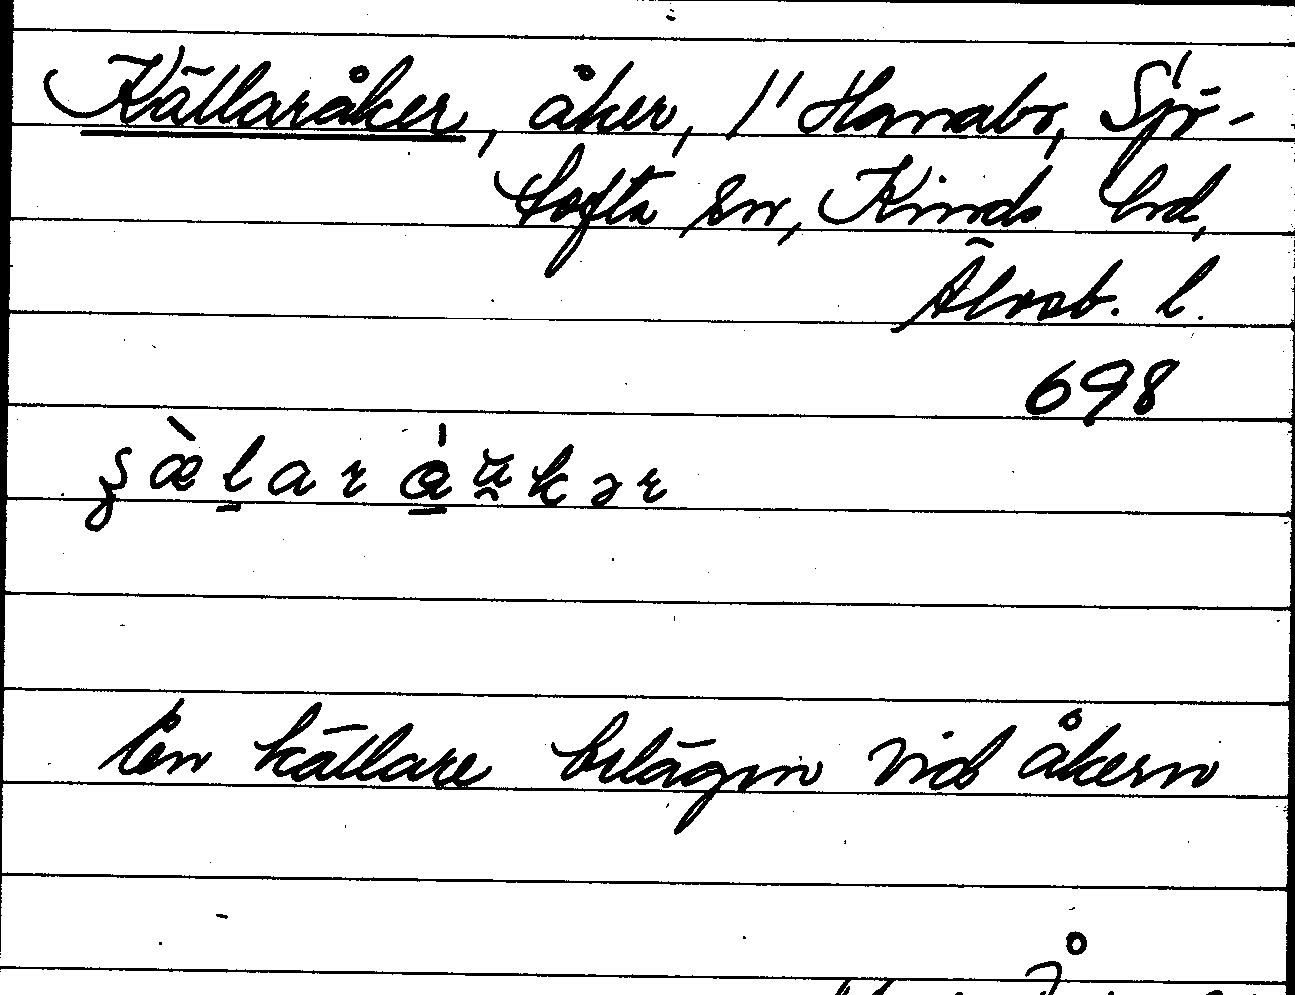 Källaråker, åker, 1/1 Hanabo, Sjö-
tofta sn, Kinds hd,
Älvsb. l.
698
ʂæ̀larɑ́u̯kər
En källare belägen vid åkern